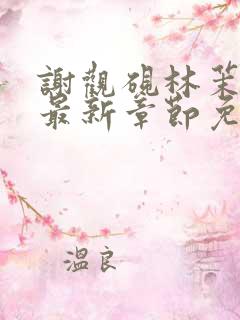 謝觀硯林
最新章節免
溫良